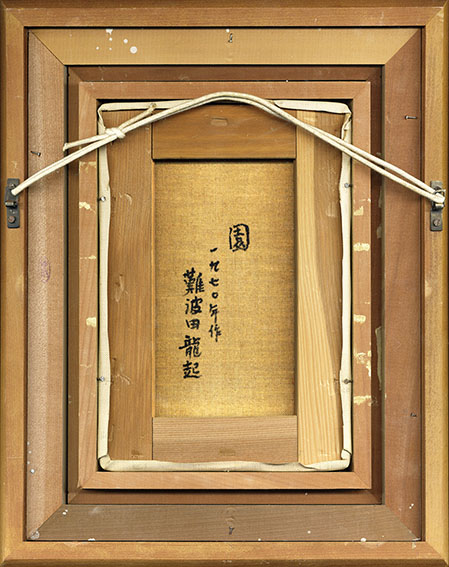 園
一九七〇年作
難波田龍起